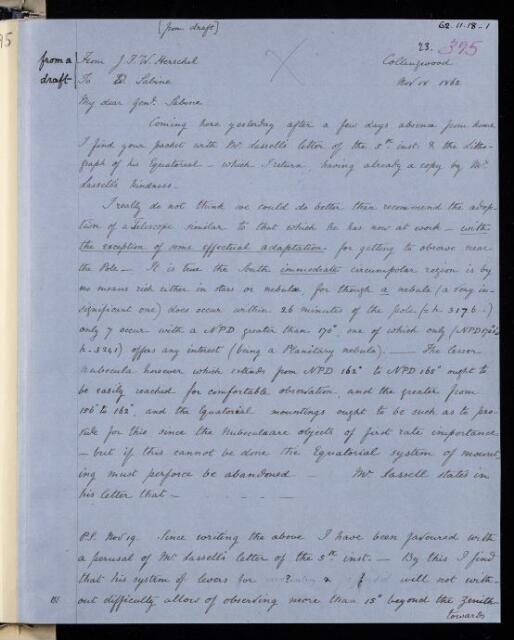 [from draft]
62-11-18-1
23. 395
from a
draft
From J.F.W. Herschel
To E. Sabine
Collingwood
Nov 18 1862
My dear Genl. Sabine
Coming here yesterday after a few days absence from home
I find your packet with Mr Lassell's letter of the 5th inst. & the Litho-
graph of his Equatorial - which I return, having already a copy by Mr.
Lassell's kindness.
I really do not think we could do better than recommend the adop-
tion of a Telescope similar to that which he has now at work - with
the exception of some effectual adaptation for getting to observe near
the Pole - It is true the South immediate circumpolar region is by
no means rich either in stars or nebulæ, for though a nebula (a very in-
significant one) does occur within 26 minutes of the pole (= h. 3176.)
only 7 occur with a NPD greater than 170°, one of which only (NPD
h. 3241) offers any interest (being a Planitary nebula). - The lesser
nubecula however which extends from NPD 162° to NPD 165° ought to
be easily reached for comfortable observation, and the greater from
156° to 162°, and the Equatorial mountings ought to be such as to pro-
vide for this since the Nubeculæ are objects of first rate importance
- but if this cannot be done the Equatorial system of mount-
ing must perforce be abandoned - Mr Lassell states in
his letter that -
P.S. Nov 19. Since writing the above I have been favoured with
a perusal of Mr Lassell's letter of the 5th inst. - By this I find
that his system of levers for will not with-
out difficulty allow of observing more than 15° beyond the Zenith
towards